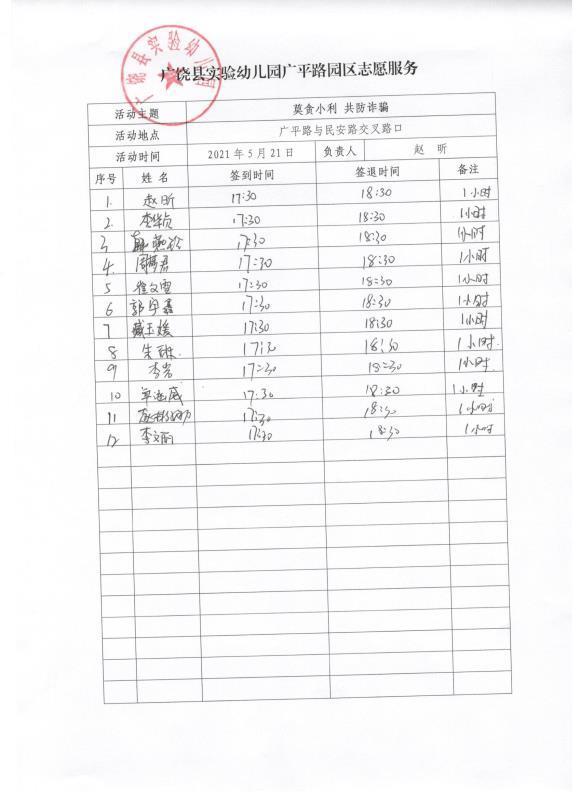 广饶县实验幼儿园
广饶县实验幼儿园广平路园区志愿服务
活动主题 莫贪小利 共防诈骗
活动地点 广平路与民安路交叉路口
活动时间 2021年5月21日 负责人 赵 昕
序号 姓 名 签到时间 签退时间 备注
1. 赵昕 17:30 18:30 1小时
2. 17:30 18:30 1小时
3 17:30 18:30 1小时
4. 17:30 18:30 1小时
5 崔文雪 17:30 18:30 1小时
6 17:30 18:30 1小时
7 臧玉媛 17:30 18:30 1小时
8 朱 17:30 18:30 1小时.
9 李岩 17:30 18:30 1小时.
10 17:30 18:30 1小时
11 17:30 18:30 1小时
12 李文丽 17:30 18:30 1小时